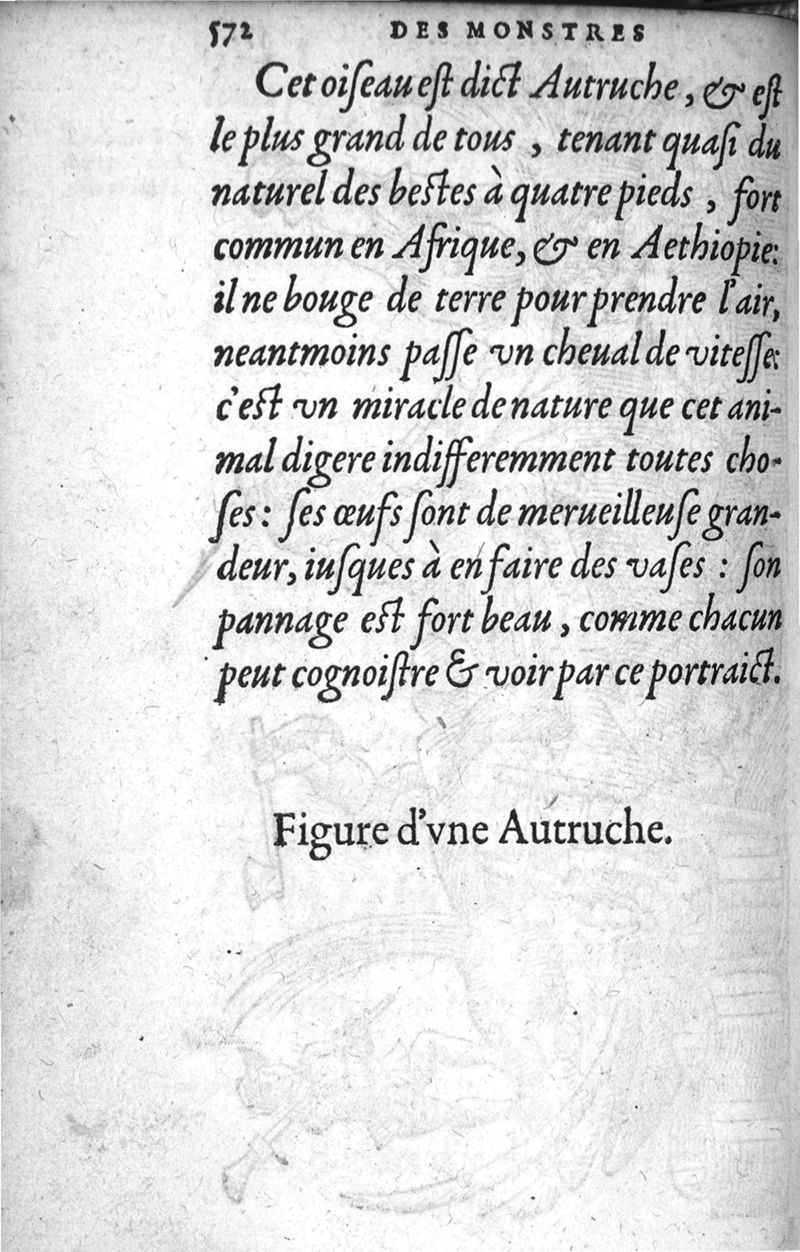 572 DES MONSTRES
Cet oiſeau eſt dict Autruche, & eſt
le plus grand de tous , tenant quaſi du
naturel des beſtes à quatre pieds , fort
commun en Afrique, & en Aethiopie:
il ne bouge de terre pour prendre l'air,
neantmoins paſſe vn cheual de viteſſe:
c'eſt vn miracle de nature que cet ani-
mal digere indifferemment toutes cho-
ſes: ſes œufs ſont de merueilleuſe gran-
deur, iuſques à en faire des vaſes : ſon
pannage eſt fort beau , comme chacun
peut cognoiſtre & voir par ce portraict.
Figure d'vne Autruche.